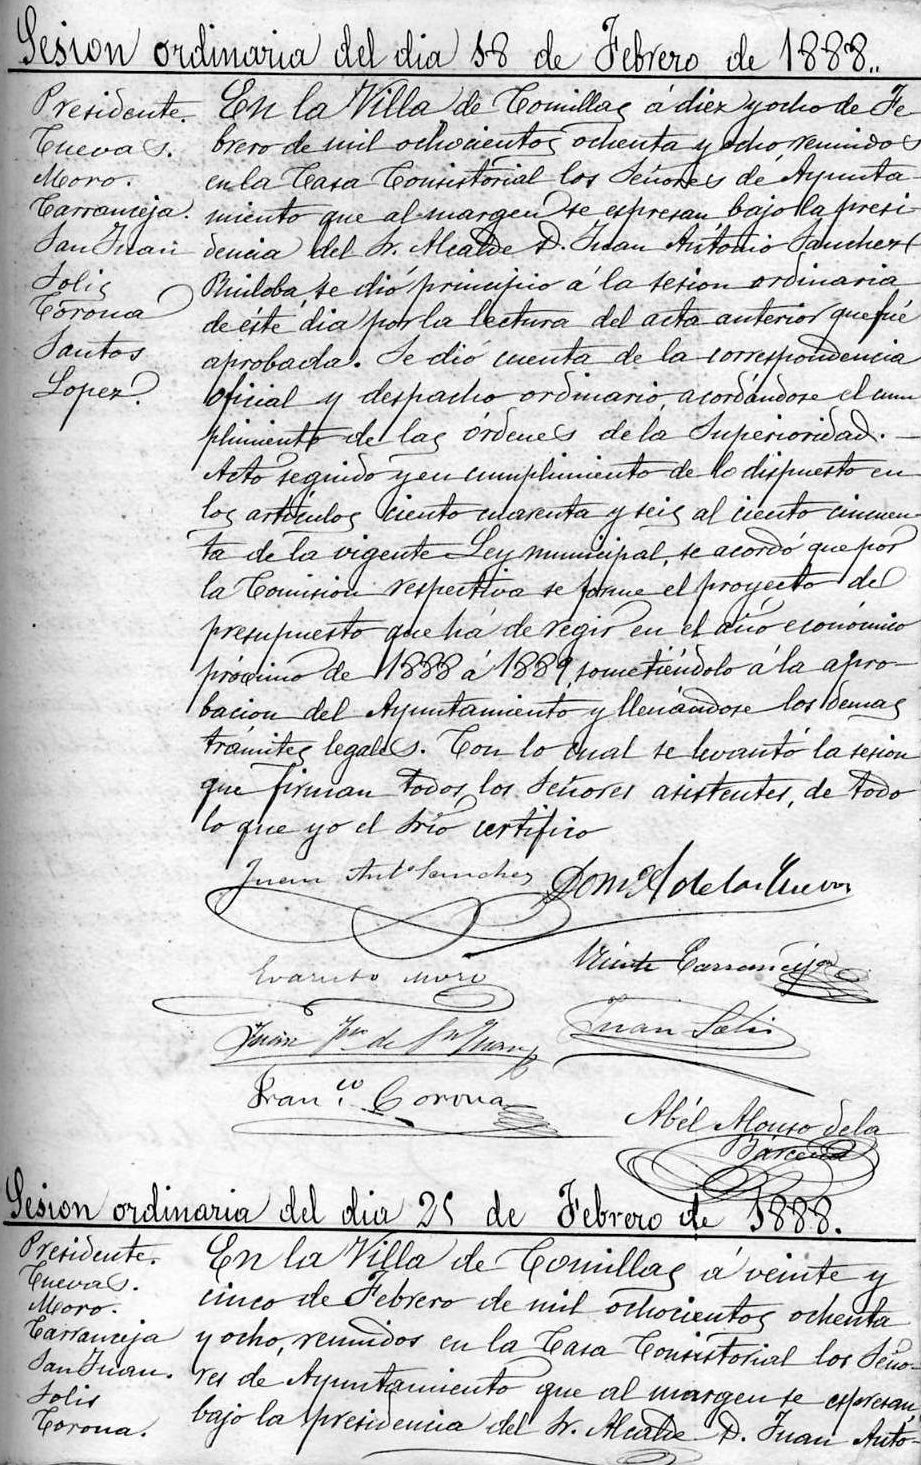 Sesion ordinaria del dia 18 de Febrero de 1888..
Presidente.
Cuevas.
Moro.
Carranceja.
San Juan
Solis
Corona
Santos
Lopez.
En la Villa de Comillas á diez y ocho de Fe-
brero de mil ochocientos ochenta y ocho reunidos
en la Casa Consistorial los Señores de Ayunta-
miento que al margen se espresan bajo la presi-
dencia del Sr. Alcalde D. Juan Antonio Sanchez
Ruiloba, se dió principio á la sesion ordinaria
de éste dia por la lectura del acta anterior que fué
aprobada. Se dió cuenta de la correspondencia
oficial y despacho ordinario acordándose el cum
plimiento de las órdenes de la Superioridad. —
Acto seguido y en cumplimiento de lo dispuesto en
los artículos ciento cuarenta y seis al ciento cincuen-
ta de la vigente Ley municipal, se acordó que por
la Comision respectiva se forme el proyecto del
presupuesto que há de regir en el año económico
próximo de 1888 á 1889, sometiéndolo á la apro-
bacion del Ayuntamiento y llenándose los demas
trámites legales. Con lo cual se levantó la sesion
que firman todos los Señores asistentes, de todo
lo que yo el Srio certifico
Juan Anto Sanchez
de las Cuevas
Evaristo Moro
Vicente Carranceja
Juan de Sn Juan
Juan Solis
Franco. Corona
Abél Alonso de la
Bárcena
Sesion ordinaria del dia 25 de Febrero de 1888.
Presidente.
Cuevas.
Moro.
Carranceja
San Juan.
Solis
Corona.
En la Villa de Comillas á veinte y
cinco de Febrero de mil ochocientos ochenta
y ocho, reunidos en la Casa Consistorial los Seño-
res de Ayuntamiento que al margen se espresan,
bajo la presidencia del Sr. Alcalde D. Juan Antó-